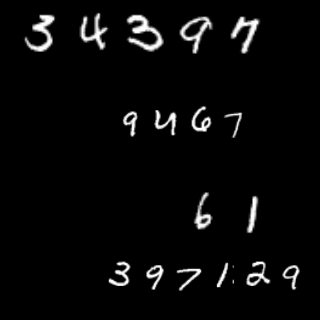 34397
9467
61
397129